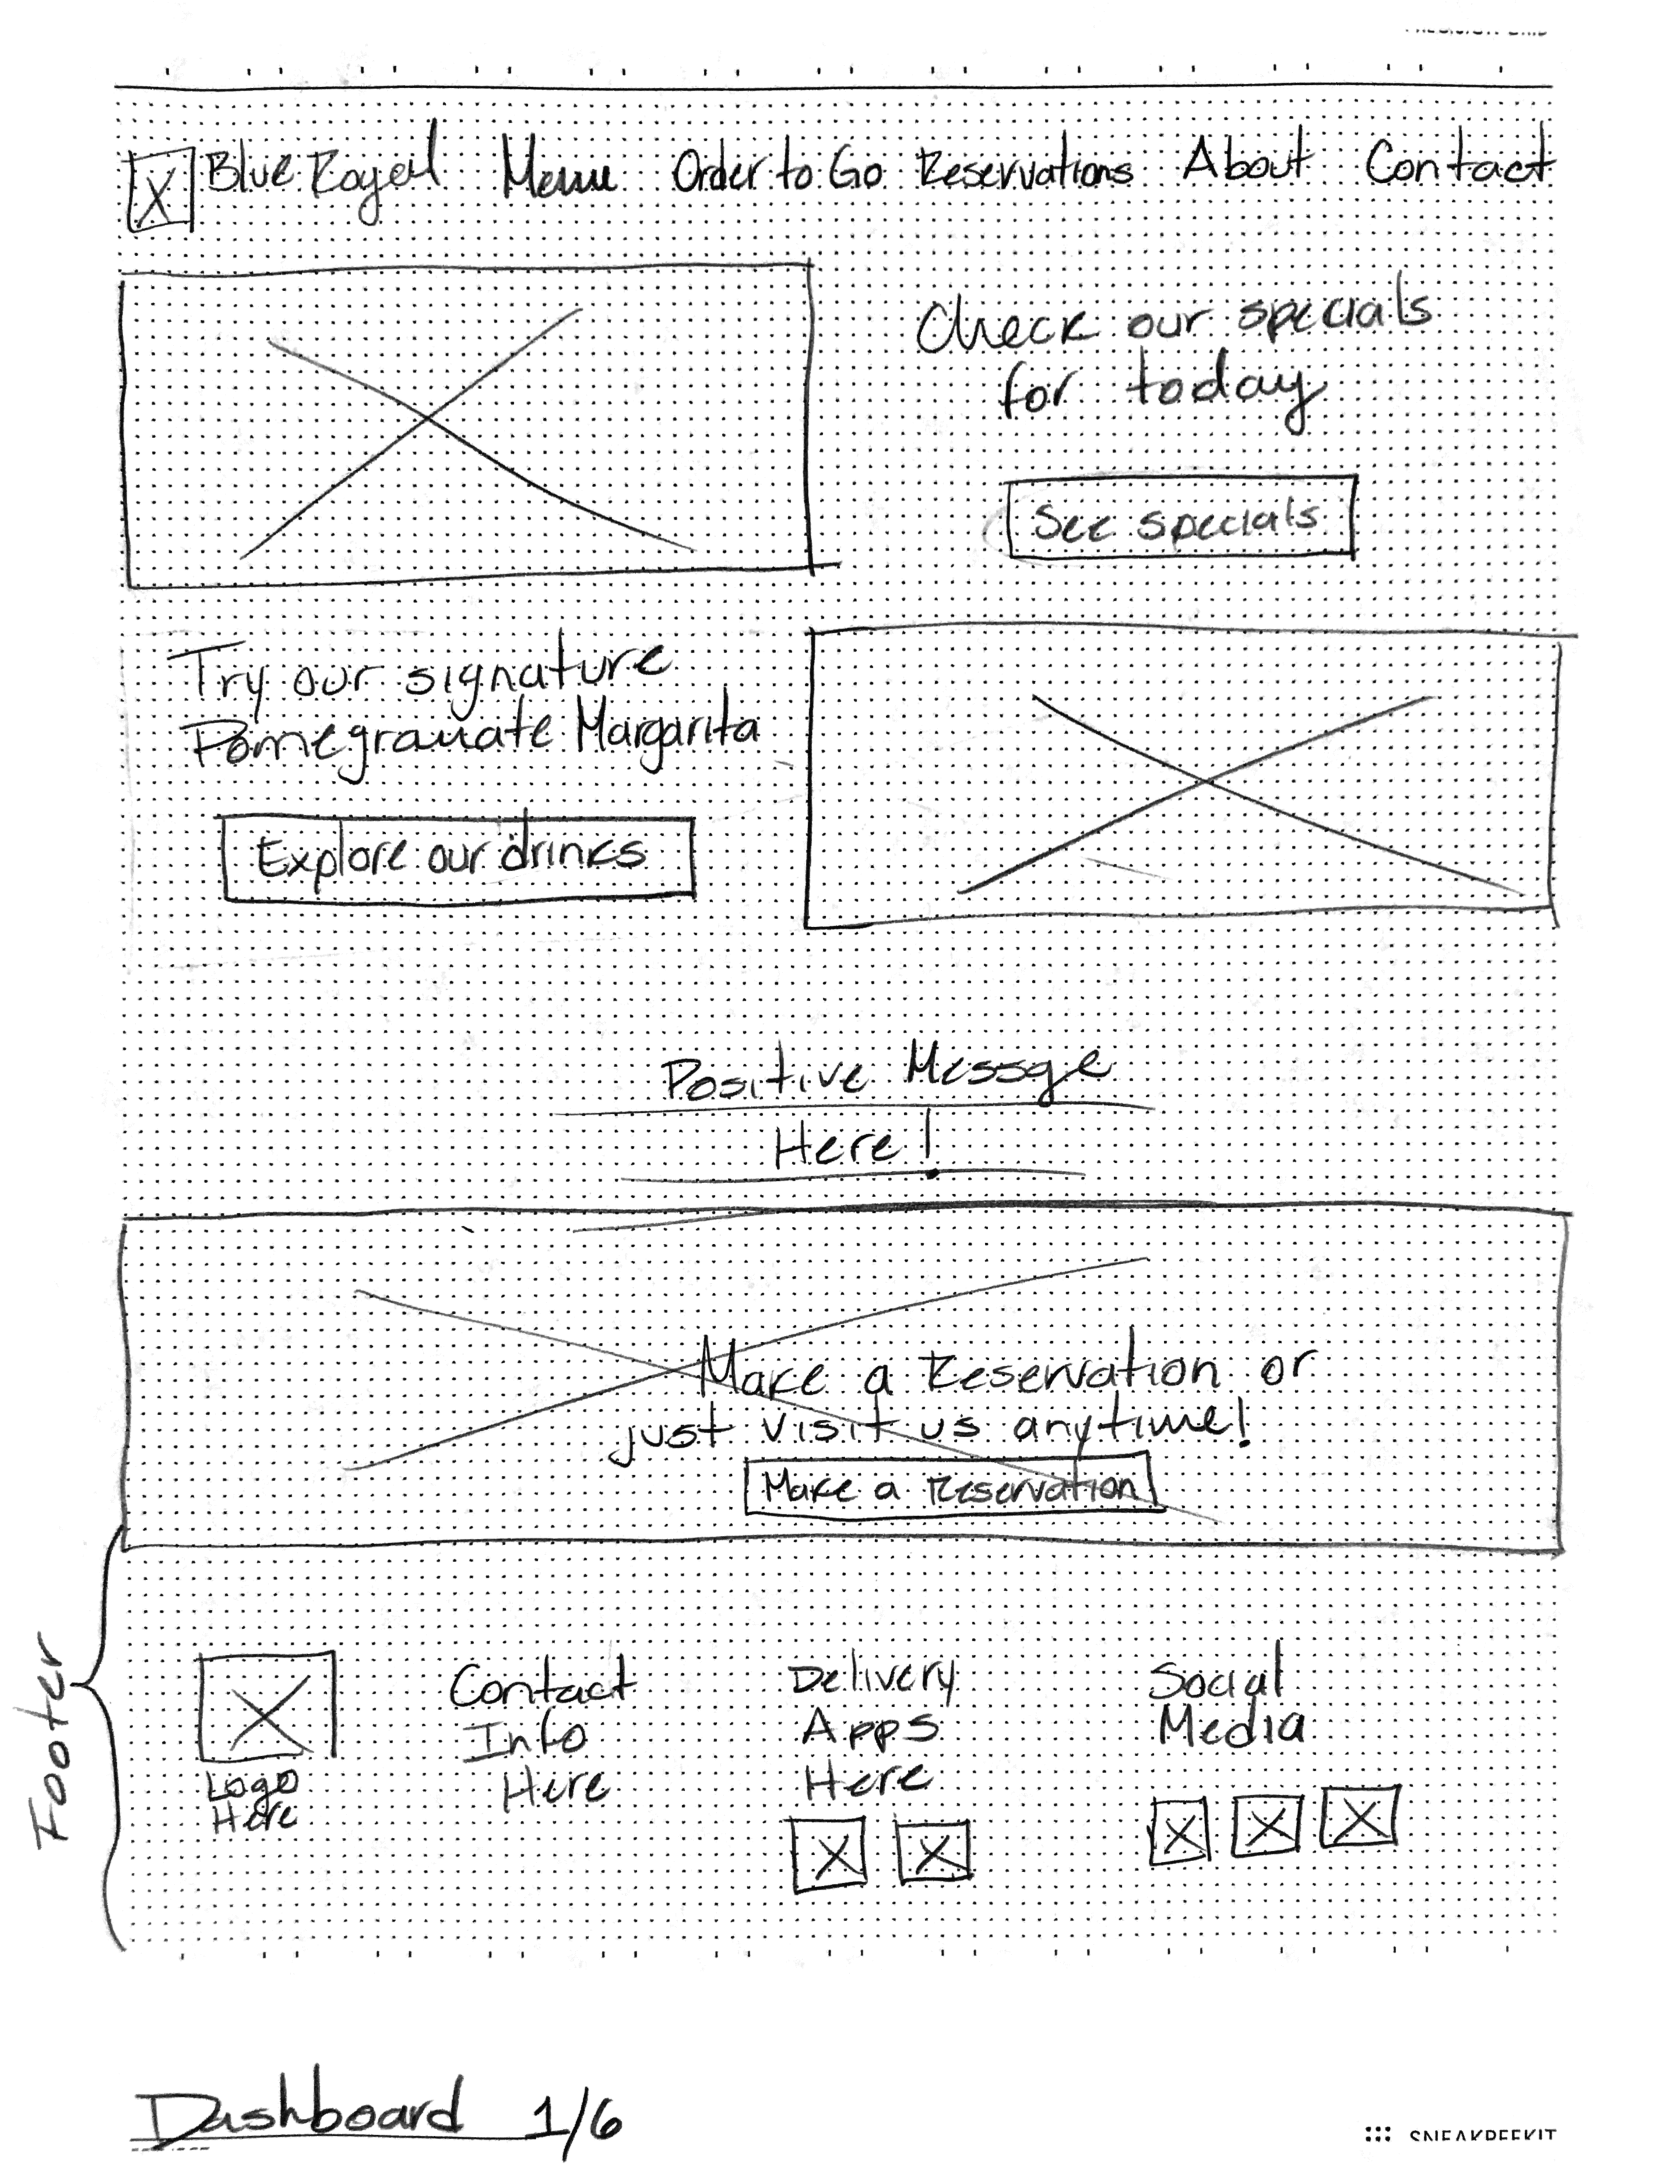 Blue Royal Menu Order to Go Reservations About Contact
Check our specials
for today
See specials
Try our signature
Pomegranate Margarita
Explore our drinks
Positive Messge
Here!
Make a Reservation or
just visit us anytime!
Make a Reservation
Footer
Logo
Here
Contact
Info
Here
Delivery
Apps
Here
Social
Media
Dashboard 1/6
SNEAKPEEKIT